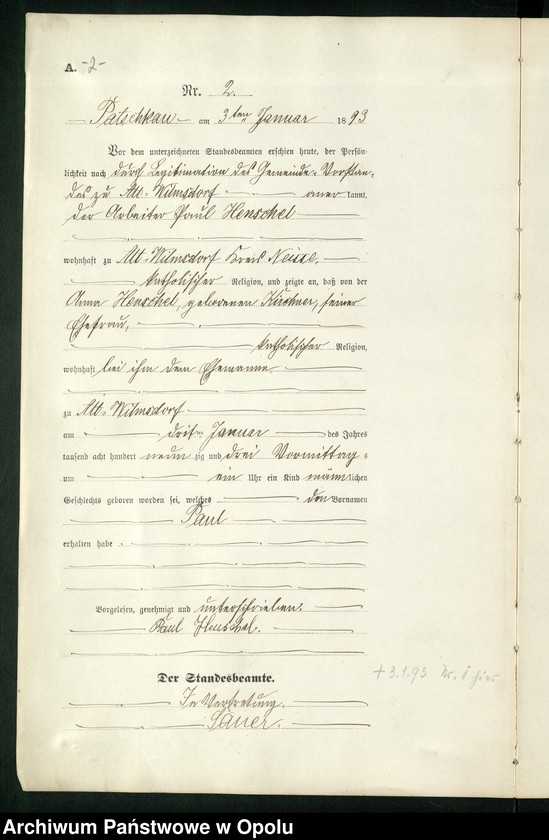 A. -2-
Nr. 2.
Patschkau am 3ten Januar 1893
Vor dem unterzeichneten Standesbeamten erschien heute, der Persön-
lichkeit nach durch Legitimation des Gemeinde-Vorstan-
des zu Alt-Wilmsdorf anerkannt,
der Arbeiter Paul Henschel
wohnhaft zu Alt-Wilmsdorf Kreis Neisse,
katholischer Religion, und zeigte an, daß von der
Anna Henschel, geborenen Kirchner, seiner
Ehefrau,
katholischer Religion,
wohnhaft bei ihm dem Ehemanne
zu Alt-Wilmsdorf
am dritten Januar des Jahres
tausend acht hundert neunzig und drei Vormittag s
um ein Uhr ein Kind männlichen
Geschlechts geboren worden sei, welches den Vornamen
Paul
erhalten habe
Vorgelesen, genehmigt und unterschrieben.
Paul Henschel.
Der Standesbeamte.
In Vertretung.
Sauer.
+ 3.1.93 Nr. 1 hier
Archiwum Państwowe w Opolu